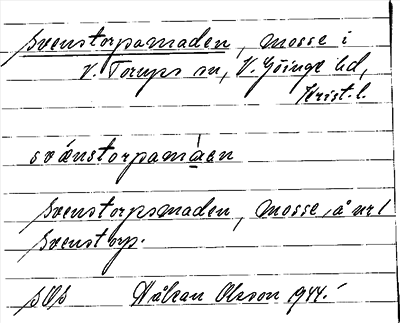 Svenstorpamaden, mosse i
V. Torups sn, V. Göinge hd,
Krist. l.
svänstorpamáen
Svenstorpsmaden, mosse, å nr 1
Svenstorp.
SOS Håkan Olsson 1944.